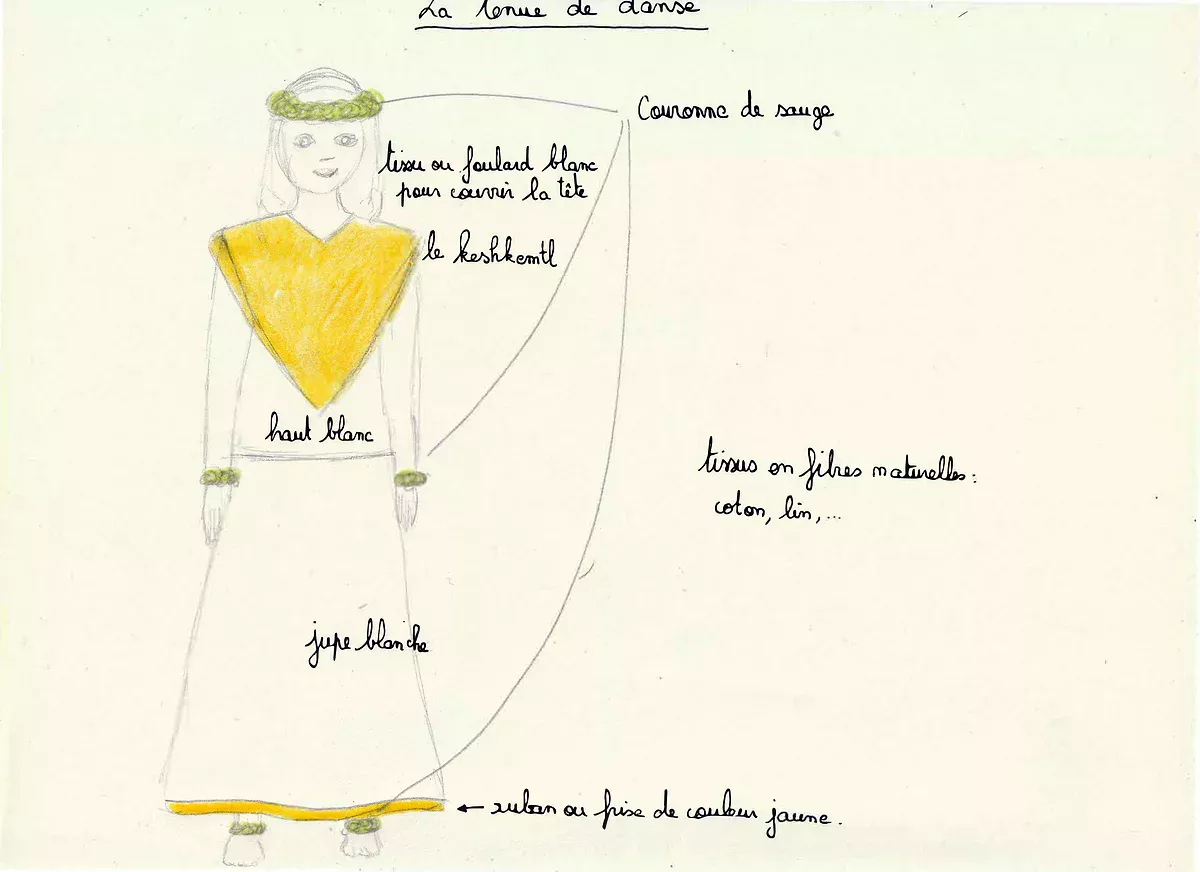 La tenue de danse
Couronne de sauge
tissu ou foulard blanc
pour couvrir la tête
le keshkemtl
haut blanc
tissus en fibres naturelles :
coton, lin, ...
jupe blanche
← ruban ou frise de couleur jaune.